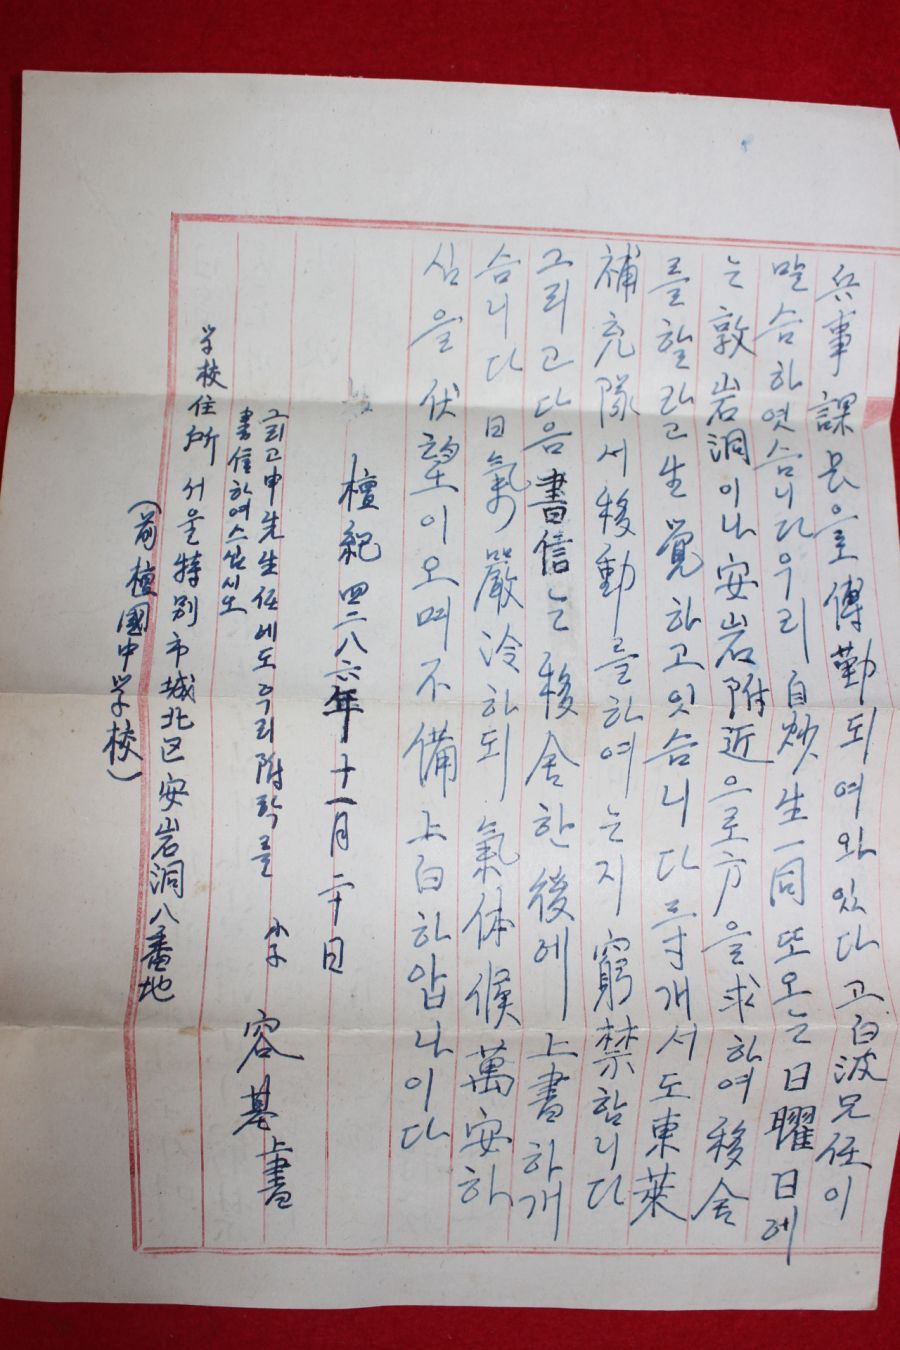 兵事課長으로 傳勤되여와있다고 白波兄任이
말슴하엿슴니다 우리 自炊生一同 또오는 日曜日에
는 敦岩洞이나 安岩附近으로 方을 求하여 移舍
를할라고 生覺하고잇슴니다 개서도 東萊
補充隊서 移動를하여는지 窮禁함니다
그리고 다음 書信는 移舍한 後에 上書하개
슴니다 日氣 嚴冷하되 氣体候萬安하
심을 伏望이오며 不備上白하압나이다
檀紀 四二八六年 十一月 二十日
小子 容基 上書
그리고 申先生任에도 우리 附탁를
書信하여스십시오
学校住所 서울特別市 城北区 安岩洞 八番地
(前 檀國中学校)